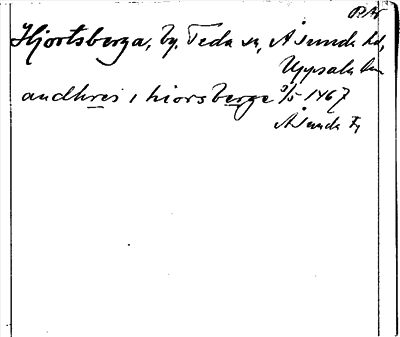 P.Ar
Hjortsberga, by, Teda sn, Åsunda hd,
Uppsala län
andhres i hiorsberge 3/5 1467
Åsunda